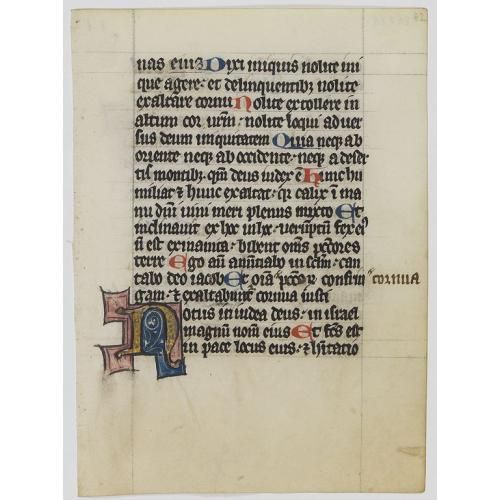 nas eiuꝫ Dixi iniquis nolite ini
que agere· et delinquentibꝫ nolite
exaltare cornu Nolite extollere in
altum cor urm̄· nolite loqui aduer
sus deum iniquitatem Quia neqꝫ ab
oriente neqꝫ ab occidente· neqꝫ a deser
tis montibꝫ· qm̄ deus iudex ē Hunc hu
miliat ⁊ hunc exaltat· qꝛ calix ī ma
nu dn̄i uini meri plenus mixto Et
inclinauit ex hoc in hoc· uerūptn̄ fex eiꝰ
n̄ est exinanita· bibent om̄s pctōres
terre Ego aūt annūtiabo in sclm̄· can
tabo deo iacob Et oīa pctōꝝ confrin
cornua
gam· ⁊ exaltabunt᷑ cornua iusti
Notus in iudea deus· in israel
magnum nom̄ eius Et fcūs est
in pace locus eius· ⁊ hītatio